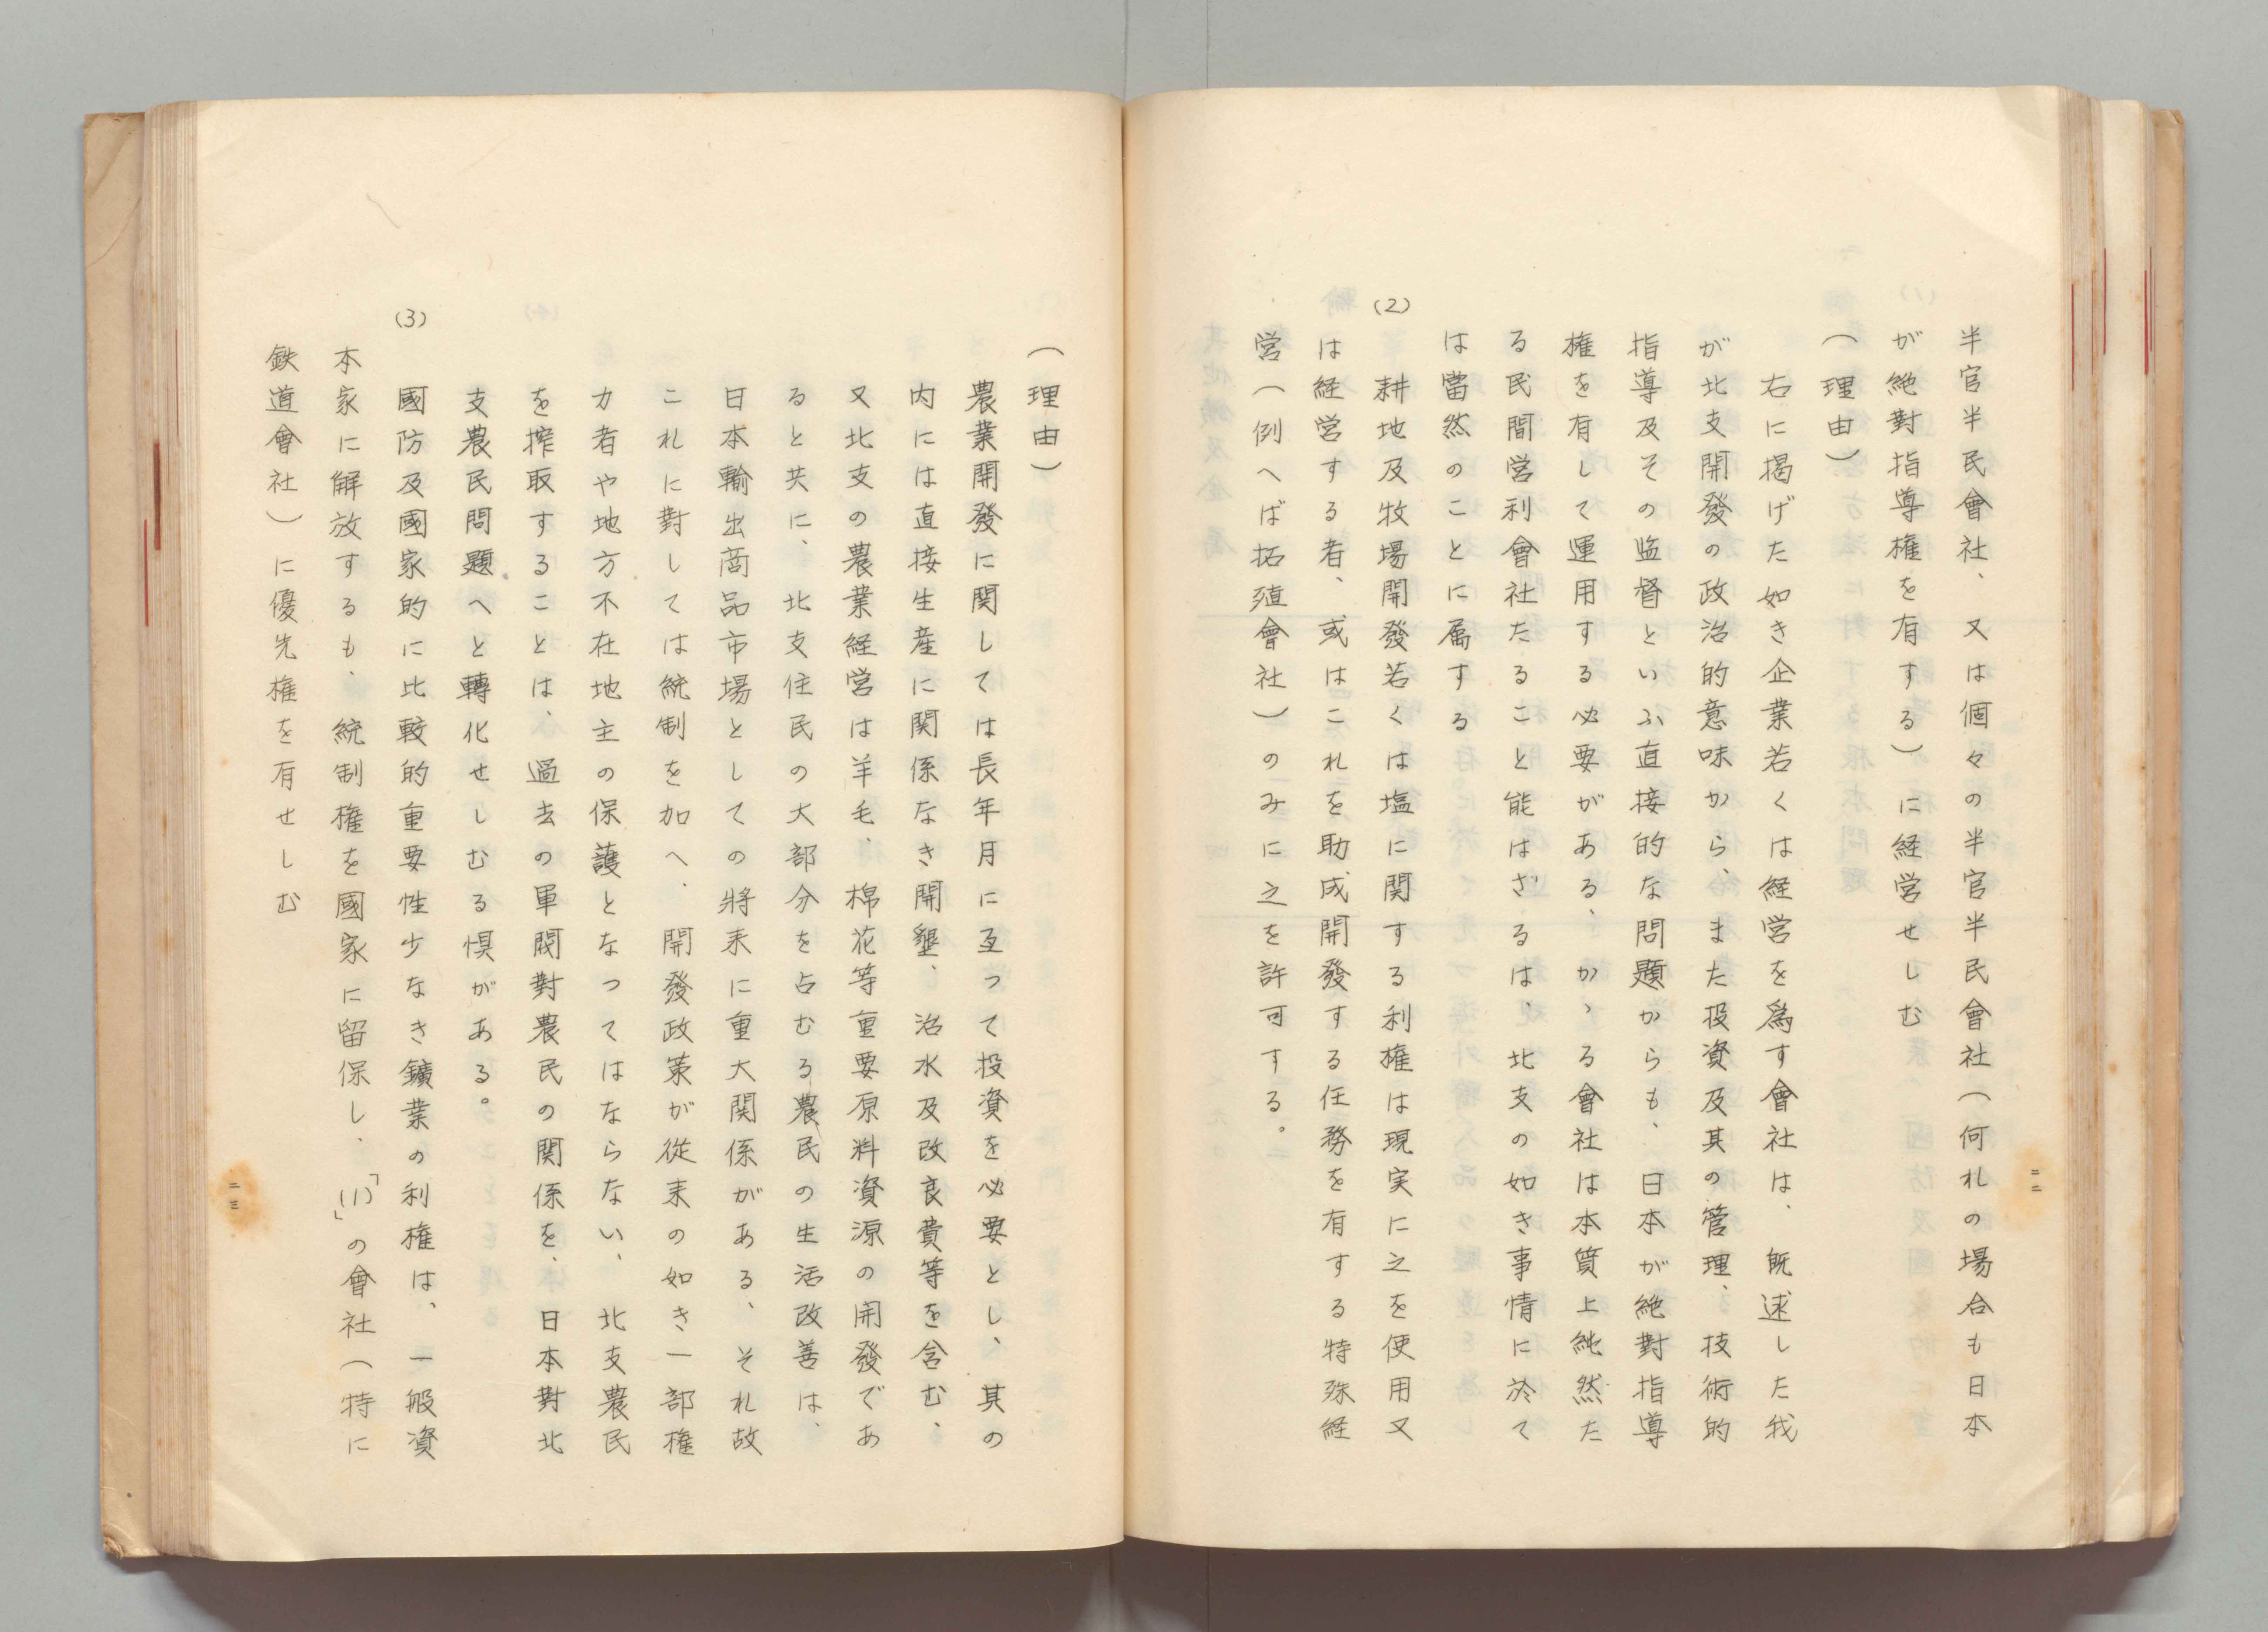 半官半民會社、又は個々の半官半民會社（何れの場合も日本
が絶對指導權を有する）に経営せしむ
（理由）
右に掲げた如き企業若くは経営を爲す會社は、既述した我
が北支開發の政治的意味から、また投資及其の管理、技術的
指導及その監督といふ直接的な問題からも、日本が絶對指導
権を有して運用する必要がある、かゝる會社は本質上純然た
る民間営利會社たること能はざるは、北支の如き事情に於て
は當然のことに属する
(2)
耕地及牧場開發若くは塩に関する利権は現実に之を使用又
は経営する者、或はこれを助成開發する任務を有する特殊経
営（例へば拓殖會社）のみに之を許可する。
二二
（理由）
農業開發に関しては長年月に亙って投資を必要とし、其の
内には直接生産に関係なき開墾、治水及改良費等を含む、
又北支の農業経営は羊毛、棉花等重要原料資源の開發であ
ると共に、北支住民の大部分を占むる農民の生活改善は、
日本輸出商品市場としての將来に重大関係がある、それ故
これに對しては統制を加へ、開發政策が從来の如き一部権
力者や地方不在地主の保護となってはならない、北支農民
を搾取することは、過去の軍閥對農民の関係を、日本對北
支農民問題へと轉化せしむる惧がある。
(3)
國防及國家的に比較的重要性少なき鑛業の利権は、一般資
本家に解放するも、統制権を國家に留保し、「(1)」の會社（特に
鉄道會社）に優先権を有せしむ
二三